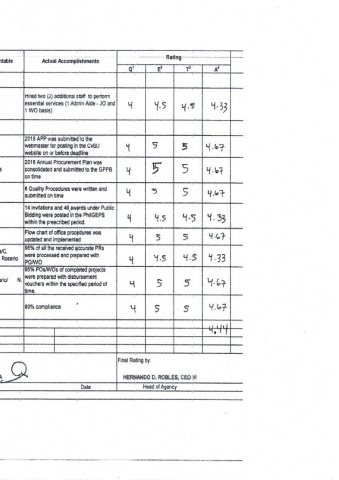 ntable
Actual Accomplishments
Rating
Q¹ E² T³ A⁴
Hired two (2) additional staff to perform
essential services (1 Admin Aide - JO and
1 WO basis)
4 4.5 4.5 4.33
2018 APP was submitted to the
webmaster for posting in the CvSU
website on or before deadline
4 5 5 4.67
2018 Annual Procurement Plan was
consolidated and submitted to the GPPB
on time
4 5 5 4.67
6 Quality Procedures were written and
submitted on time
4 5 5 4.67
14 invitations and 46 awards under Public
Bidding were posted in the PhilGEPS
within the prescribed period.
4 4.5 4.5 4.33
Flow chart of office procedures was
updated and implemented
4 5 5 4.67
Rosario
95% of all the received accurate PRs
were processed and prepared with
PO/WO
4 4.5 4.5 4.33
N.
95% POs/WOs of completed projects
were prepared with disbursement
vouchers within the specified period of
time.
4 5 5 4.67
80% compliance
4 5 5 4.67
4.44
Final Rating by:
HERNANDO D. ROBLES, CEO VI
Date
Head of Agency